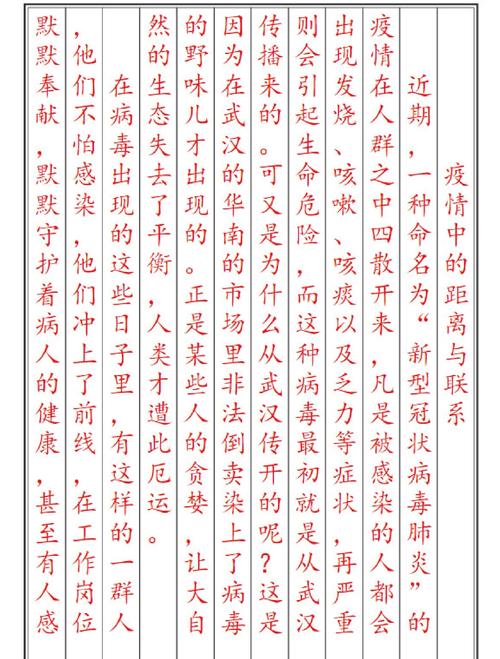 疫情中的距离与联系
近期，一种命名为“新型冠状病毒肺炎”的
疫情在人群之中四散开来，凡是被感染的人都会
出现发烧、咳嗽、咳痰以及乏力等症状，再严重
则会引起生命危险，而这种病毒最初就是从武汉
传播来的。可又是为什么从武汉传开的呢？这是
因为在武汉的华南的市场里非法倒卖染上了病毒
的野味儿才出现的。正是某些人的贪婪，让大自
然的生态失去了平衡，人类才遭此厄运。
在病毒出现的这些日子里，有这样的一群人
，他们不怕感染，他们冲上了前线，在工作岗位
默默奉献，默默守护着病人的健康，甚至有人感